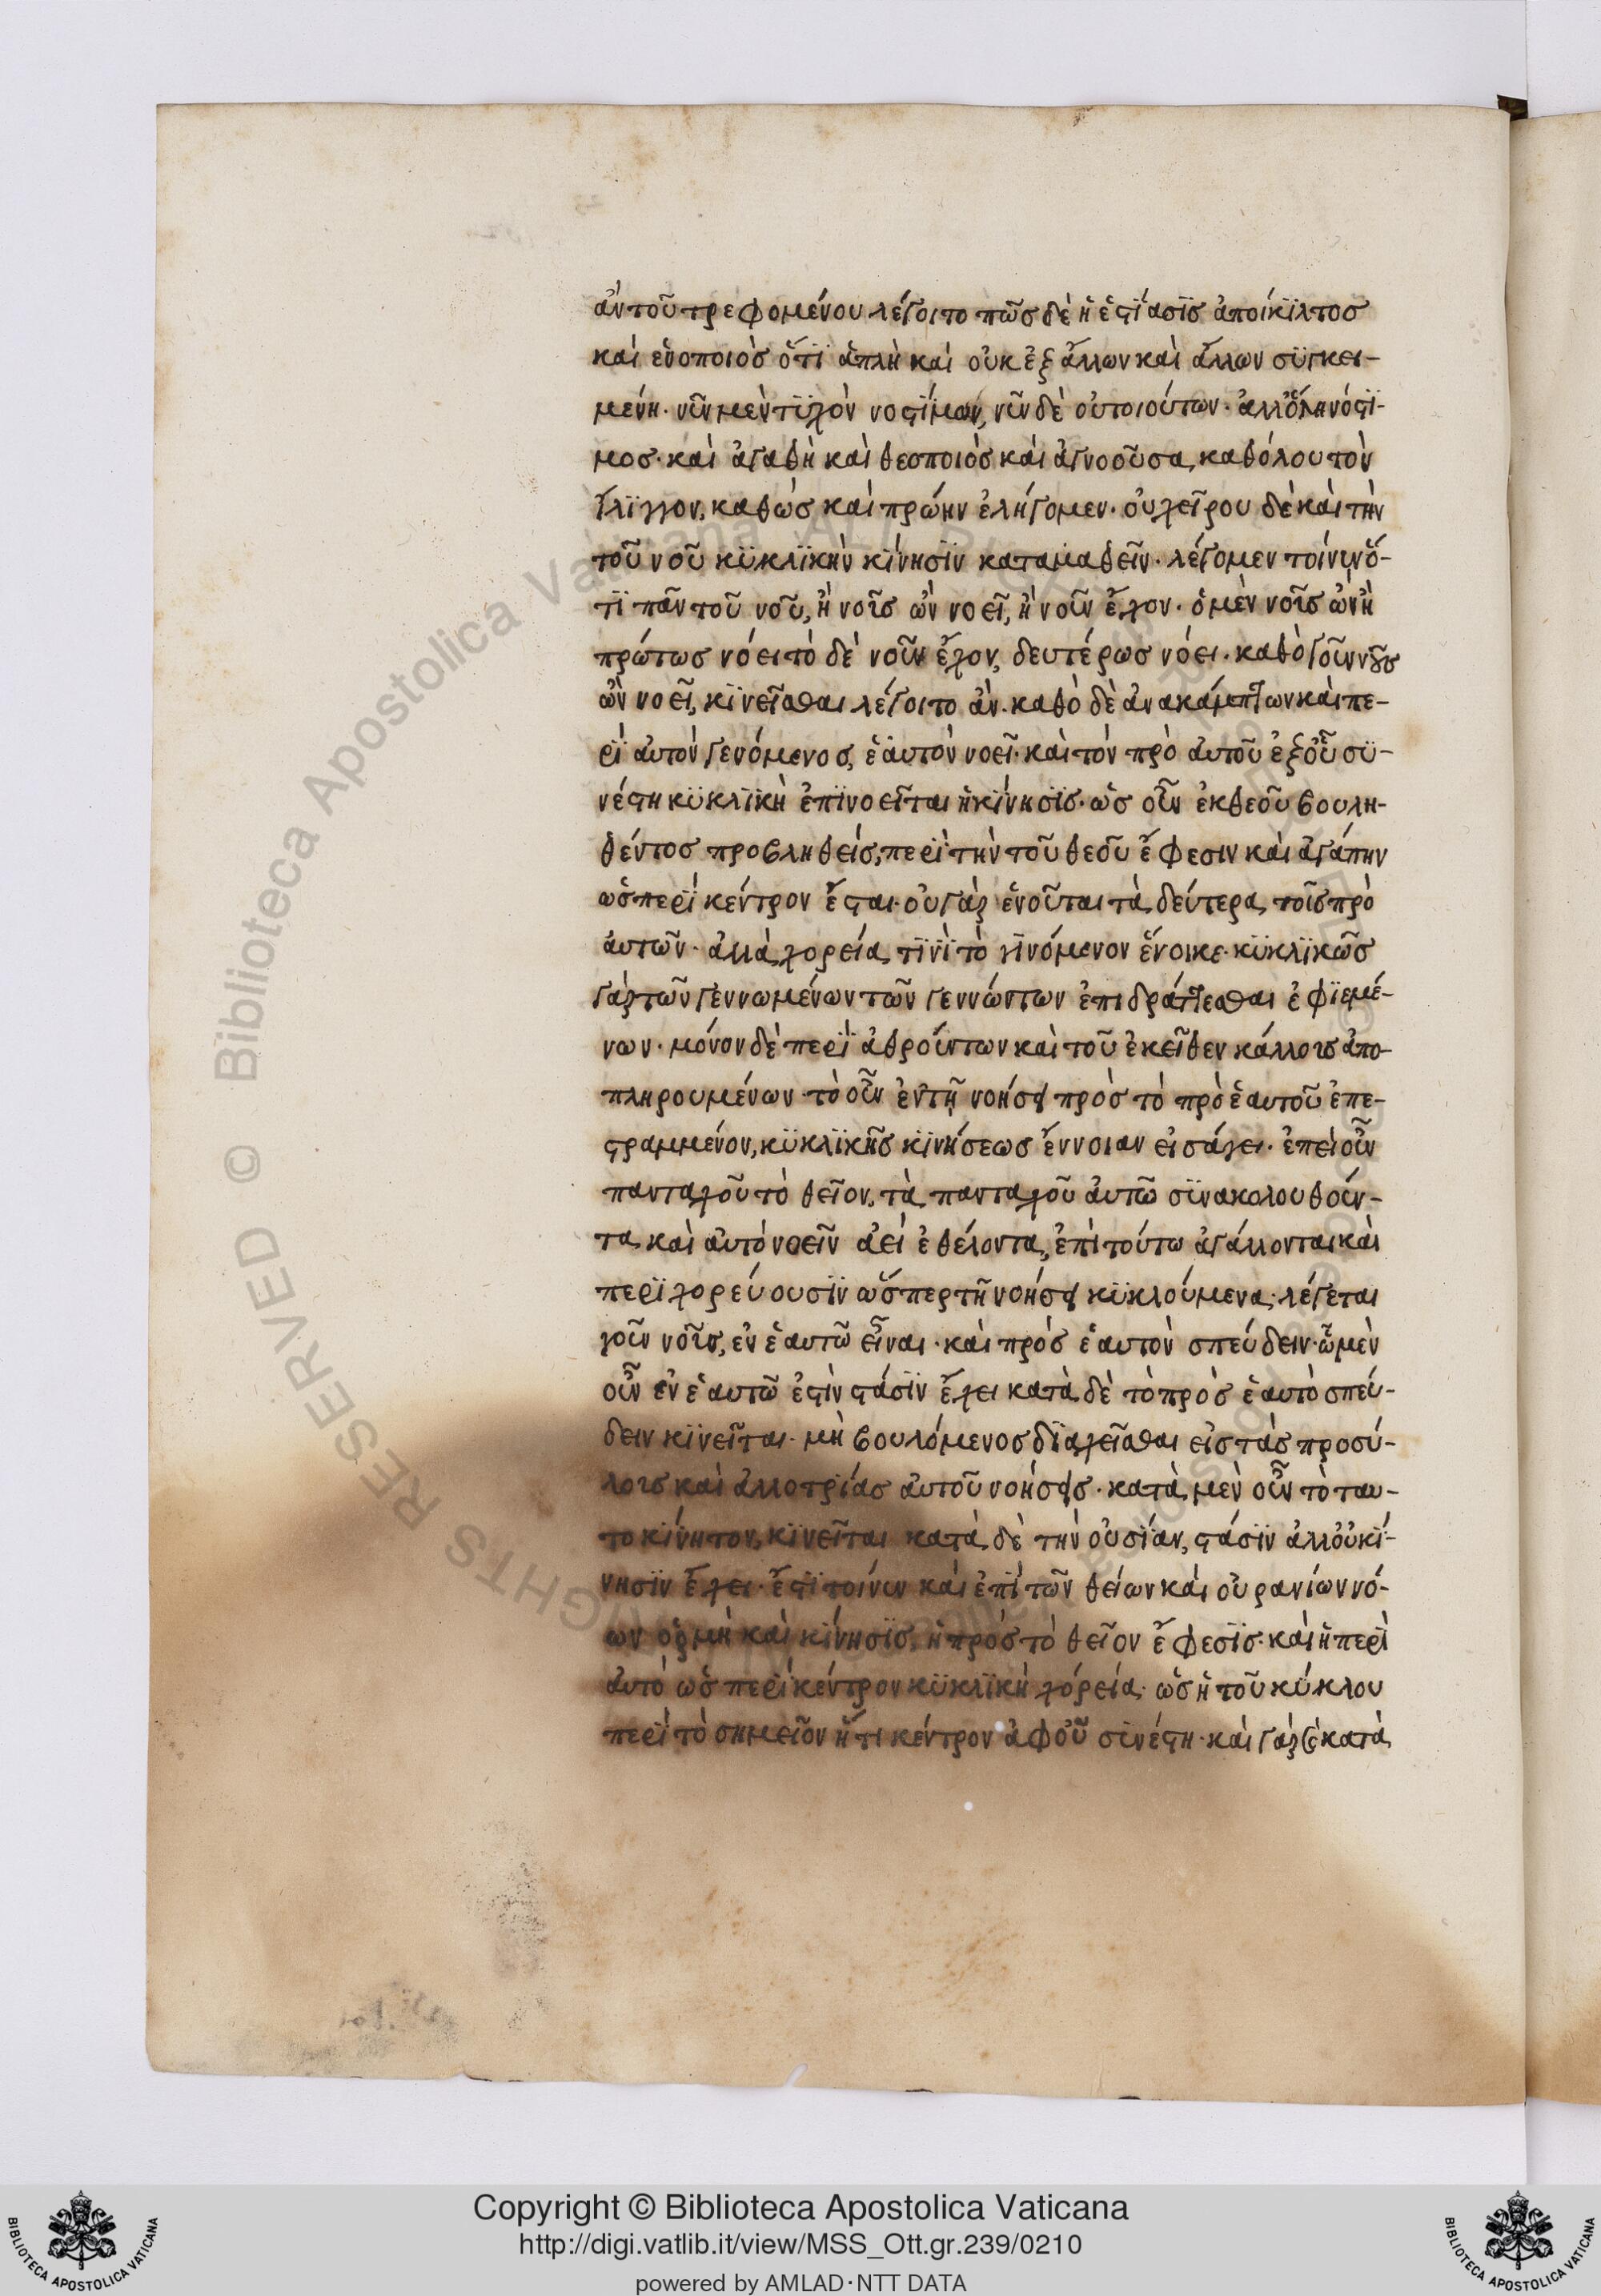 ἀν τοῦ τρεφομένου λέγοιτο πῶς δὲ ἡ ἑστίασϊς ἀποίκϊλτος
καὶ ἑνοποιὸς ὅτϊ ἁπλὴ καὶ οὐκ ἐξ ἄλλων καὶ ἄλλων σϋγκει-
μένη· νῦν μὲν τϊχὸν νοστίμων, νῦν δὲ οὐ τοιούτων· ἀλλ' ὅλη νόστϊ-
μος· καὶ ἀγαθὴ καὶ θεοποιὸς καὶ ἀγνοοῦσα καθόλου τὸν
ἴλϊγγον, καθὼς καὶ πρώην ἐλήγομεν· οὐ χεῖρον δὲ καὶ τὴν
τοῦ νοῦ κϋκλϊκὴν κίνησϊν καταμαθεῖν· λέγομεν τοίνυν ὅ-
τϊ πᾶν τοῦ νοῦ, ἢ νοῦς ὢν νοεῖ, ἢ νοῦν ἔχον· ὁ μὲν νοῦς ὢν ἢ
πρώτως νόει τὸ δὲ νοῦν ἔχον, δευτέρως νόει· καθὸ γοῦν νοῦς
ὢν νοεῖ, κϊνεῖσθαι λέγοιτο ἀν· καθὸ δὲ ἀνακάμπτων καὶ πε-
ρῒ αὐτὸν γενόμενος, ἑαυτὸν νοεῖ· καὶ τὸν πρὸ αὐτοῦ ἐξ οὗ σϋ-
νέστη κϋκλϊκὴ ἐπϊνοεῖται ἡ κίνησϊς· ὡς οὖν ἐκ θεοῦ βουλη-
θέντος προβληθεὶς, περῒ τὴν τοῦ θεοῦ ἔφεσιν καὶ ἀγάπην
ὡς περῒ κέντρον ἔσται· οὐ γὰρ ἑνοῦται τὰ δεύτερα τοῖς πρὸ
αὐτῶν· ἀλλὰ χορεία τϊνὶ τὸ γϊνόμενον ἔνοικε· κϋκλϊκῶς
γὰρ τῶν γεννωμένων τῶν γεννώντων ἐπιδράττεσθαι ἐφϊεμέ-
νων· μόνον δὲ περῒ ἀθροίντων καὶ τοῦ ἐκεῖθεν κάλλους ἀπο-
πληρουμένων τὸ οὖν ἐν τῇ νοήσει πρὸς τὸ πρὸ ἑαυτοῦ ἐπε-
στραμμένον, κϋκλϊκῆς κϊνήσεως ἔννοιαν εἰσάγει· ἐπεὶ οὖν
πανταχοῦ τὸ θεῖον, τὰ πανταχοῦ αὐτῶ σϋνακολουθοῦν-
τα καὶ αὐτὸ νοεῖν ἀεὶ ἐθέλοντα, ἐπὶ τούτω ἀγάλλονται καὶ
περϊχορεύουσϊν ὥσπερ τῇ νοήσει κϋκλούμενα· λέγεται
γοῦν νοῦς, ἐν ἑαυτῶ εἶναι· καὶ πρὸς ἑαυτὸν σπεύδειν· ὧ μὲν
οὖν ἐν ἑαυτῶ ἐστὶν στάσϊν ἔχει κατὰ δὲ τὸ πρὸς ἑαυτὸ σπεύ-
δειν κϊνεῖται· μὴ βουλόμενος δϊαχεῖσθαι εἰς τὰς προσύ-
λους καὶ ἀλλοτρίας αὐτοῦ νοήσεις· κατὰ μὲν οὖν τὸ ταυ-
τοκίνητον, κϊνεῖται κατὰ δὲ τὴν οὐσίαν, στάσϊν ἀλλ' οὐ κί-
νησϊν ἔχει· ἔστϊ τοίνυν καὶ ἐπῒ τῶν θείων καὶ οὐρανίων νό-
ων ὁρμὴ καὶ κίνησϊς, ἡ πρὸς τὸ θεῖον ἔφεσϊς· καὶ ἡ περὶ
αὐτὸ ὡς περῒ κέντρον κϋκλϊκὴ χόρεία· ὡς ἡ τοῦ κύκλου
περῒ τὸ σημεῖον ἤτι κέντρον ἀφ' οὗ σϋνέστη· καὶ γὰρ καὶ κατὰ
Copyright © Biblioteca Apostolica Vaticana
http://digi.vatlib.it/view/MSS_Ott.gr.239/0210
powered by AMLAD·NTT DATA